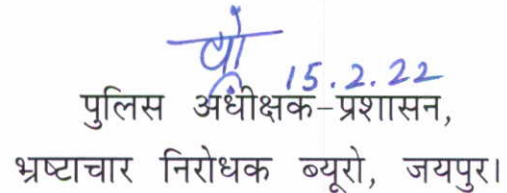 15.2.22
पुलिस अधीक्षक-प्रशासन,
भ्रष्टाचार निरोधक ब्यूरो, जयपुर।